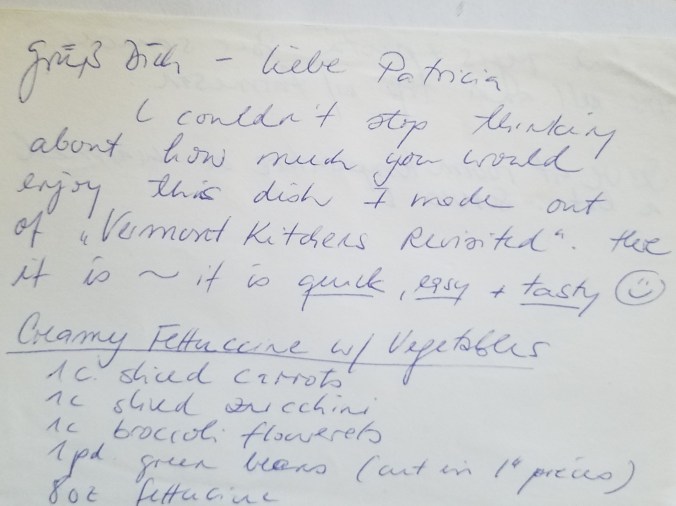 Grüß Dich – liebe Patricia
I couldn't stop thinking
about how much you would
enjoy this dish I made out
of „Vermont Kitchens Revisited“. Here
it is ~ it is quick, easy + tasty ☺
Creamy Fettuccine w/ Vegetables
1 c. sliced carrots
1c sliced zucchini
1c broccoli flowerets
1 pd. green beans (cut in 1" pieces)
8 oz fettucine